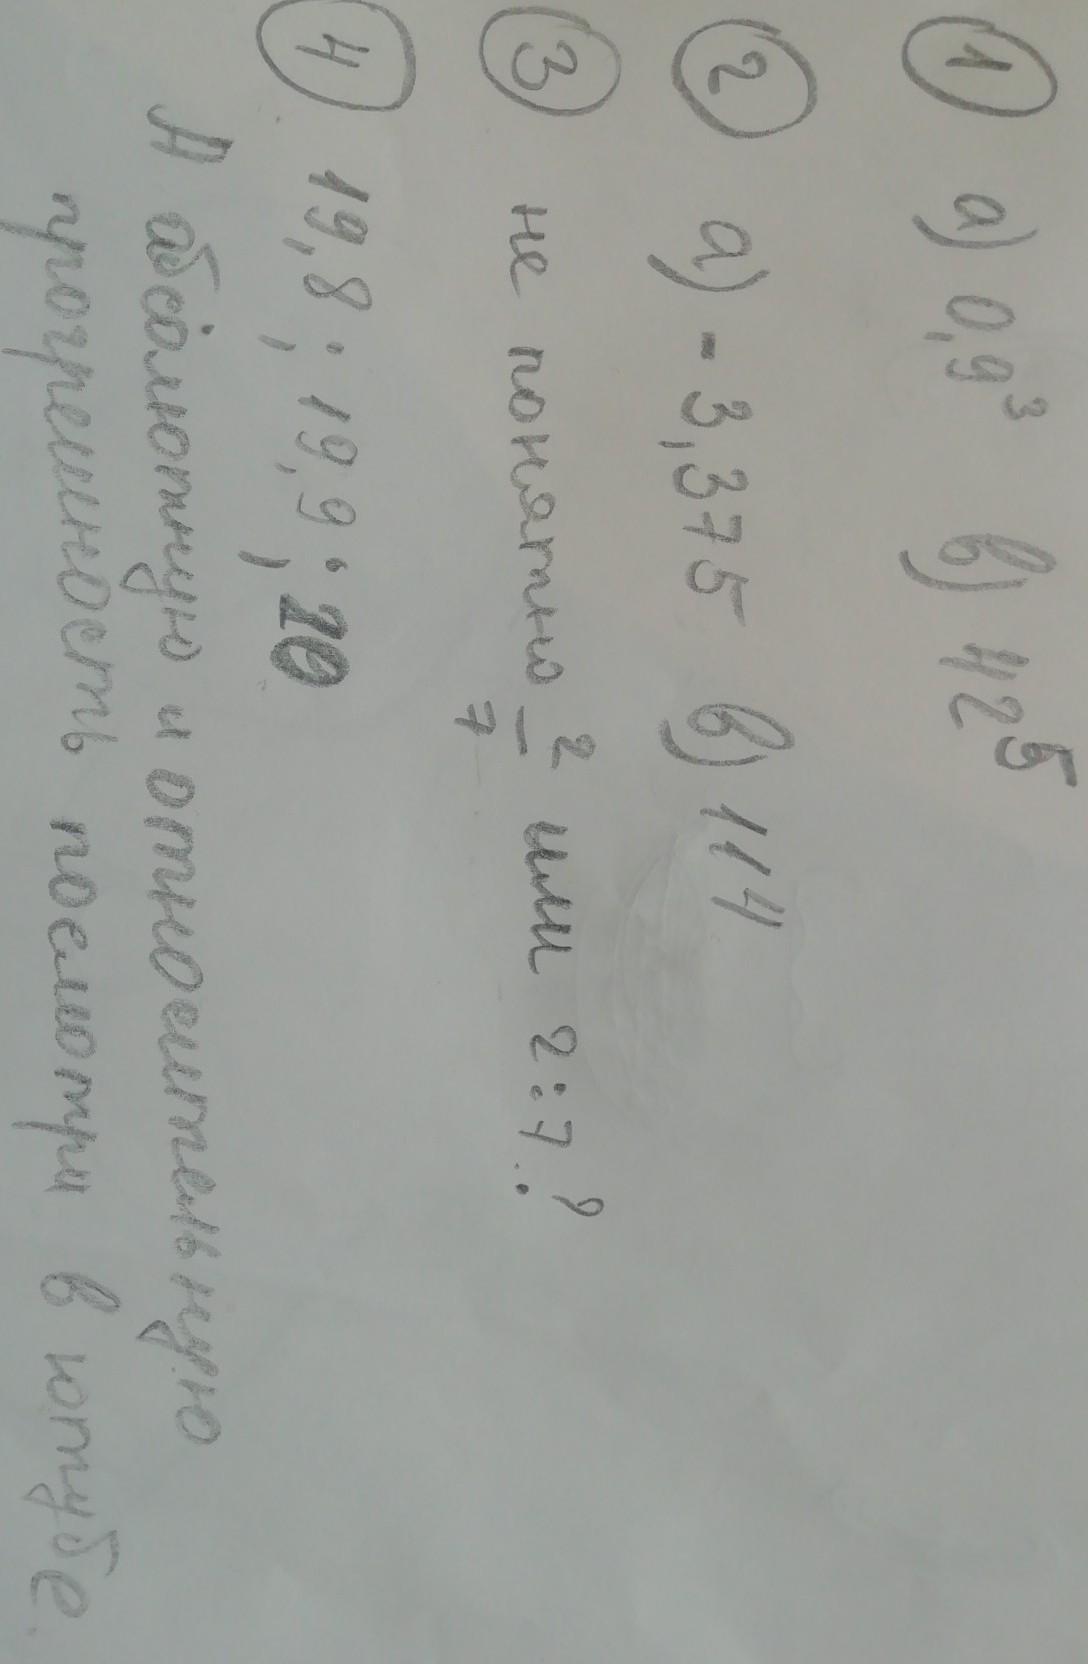 1 а) 0,9³ в) 42⁵
2 а) - 3,375 в) 114
3 не понятно 2/7 или 2:7?
4 19,8; 19,9; 20
А абсолютную и относительную
прогрешность посмотри в ютубе.